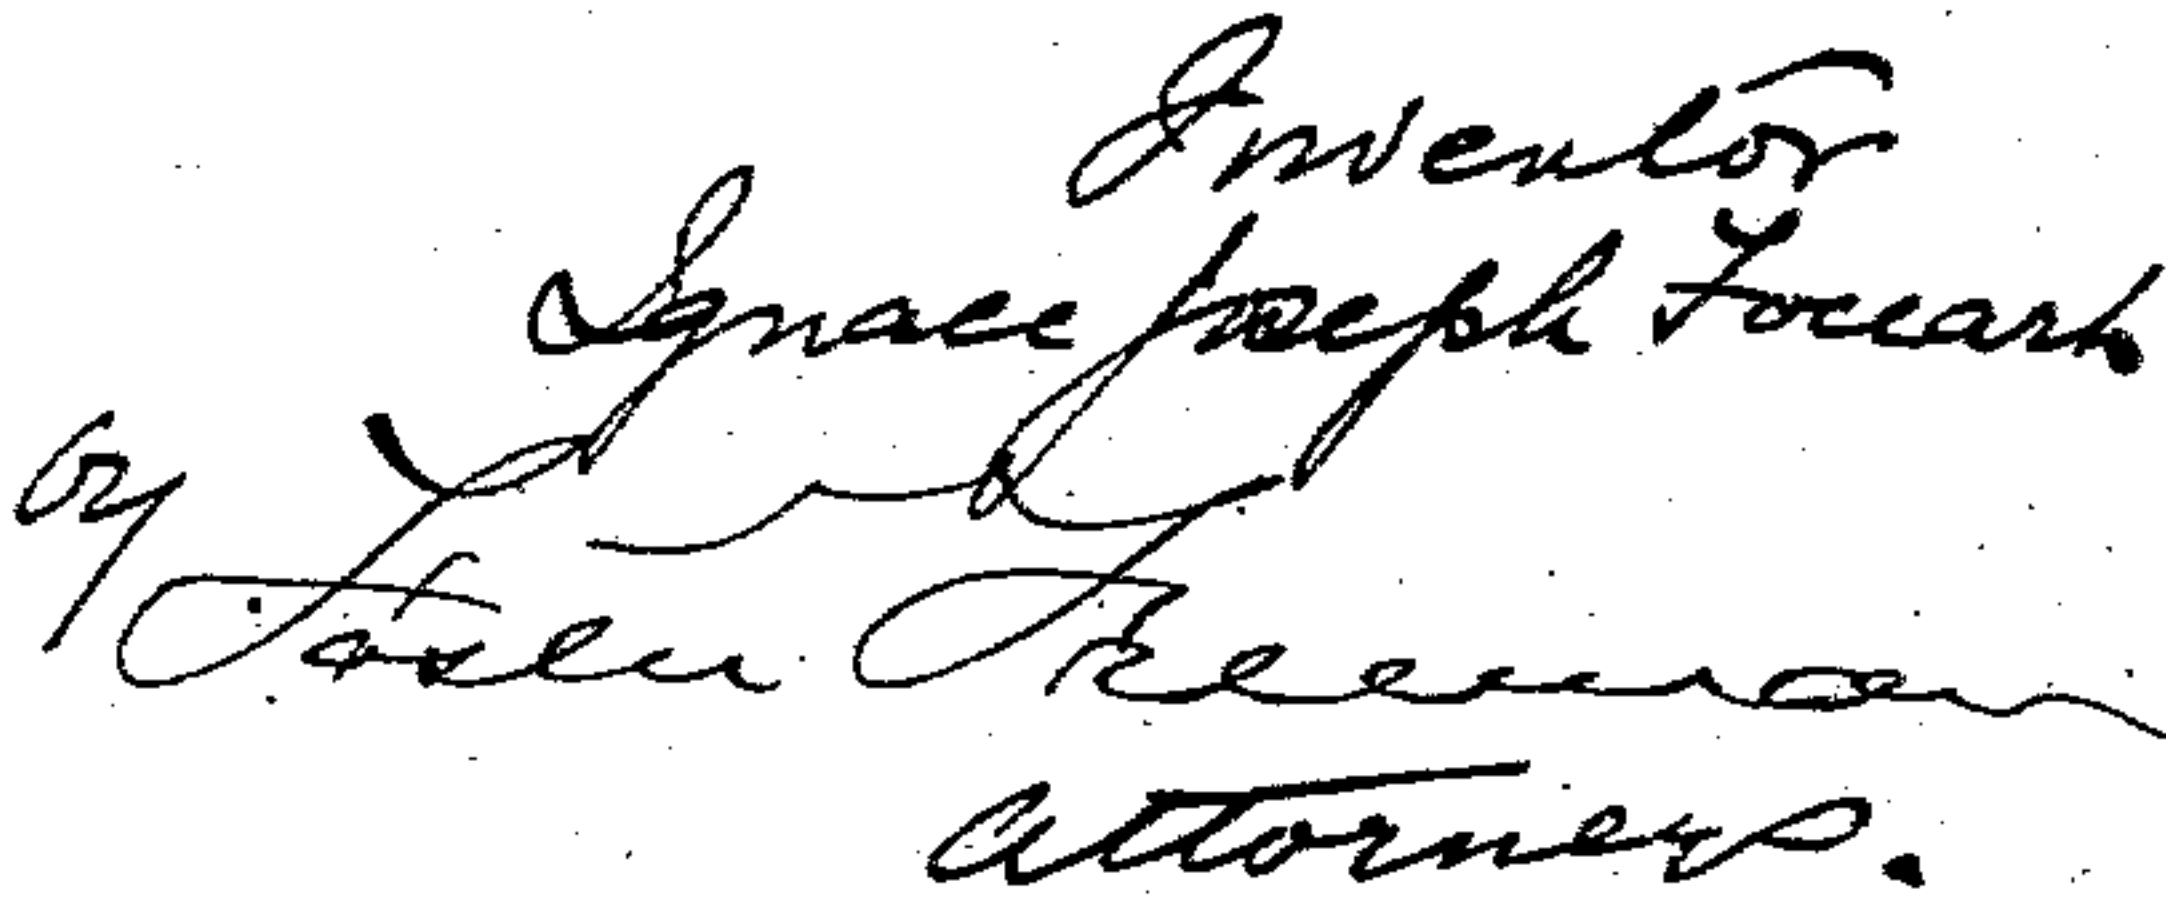 Inventor
Ignace Joseph Foucart
by Foster Freeman
Attorneys.